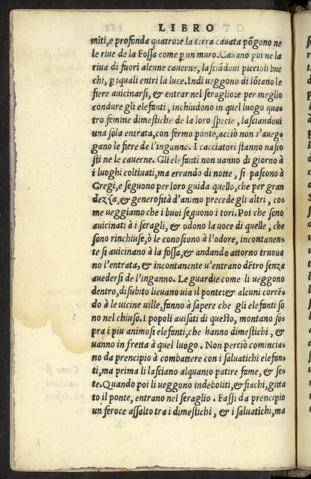 LIBRO
miti, e profonda quatro, e la terra cauata põgono ne
le riue de la Fossa come p un muro. Cauano poi ne la
riua di fuori alcune cauerne, lasciãdoui piccioli bu
chi, p iquali entri la luce. Indi ueggono di lõtano le
fiere auicinarsi, & entrar nel seraglio: e per meglio
condure gli elefanti, inchiudono in quel luogo qua-
tro femine dimestiche de la loro specie, lasciandoui
una sola entrata, con fermo ponte, acciò non s'aueg-
gano le fiere de l'ingunno. I cacciatori stanno nasco
sti ne le cauerne. Gli elefanti non uanno di giorno à
i luoghi coltiuati, ma errando di notte, si pasono à
Gregi, e seguono per loro guida quello, che per gran
dezza, & generosità d'animo precede gli altri, co-
me ueggiamo che i buoi seguono i tori. Poi che sono
auicinati à i seragli, & odono la uoce di quelle, che
sono rinchiuse, ò le conoscono à l'odore, incontanen-
te si auicinano à la fossa, & andando attorno truoua
no l'entrata, & incontanente u'entrano dẽtro senza
auedersi de l'inganno. Le guardie come li ueggono
dentro, di subito lieuano uia il ponte & alcuni corrẽ-
do à le uicine uille, fanno à sapere che gli elefanti so
no nel chiuso. I popoli auisati di questo, montano so-
pra i piu animosi elefanti, che hanno dimestichi, &
uanno in fretta à quel luogo. Non perciò comincia-
no da prencipio à combattere con i saluatichi elefan-
ti, ma prima li lasciano alquanto patire fame, & se-
te. Quando poi li ueggono indeboliti, & fiachi, gitta
to il ponte, entrano nel seraglio. Fassi da prencipio
un feroce assalto tra i dimestichi, & i saluatichi, ma